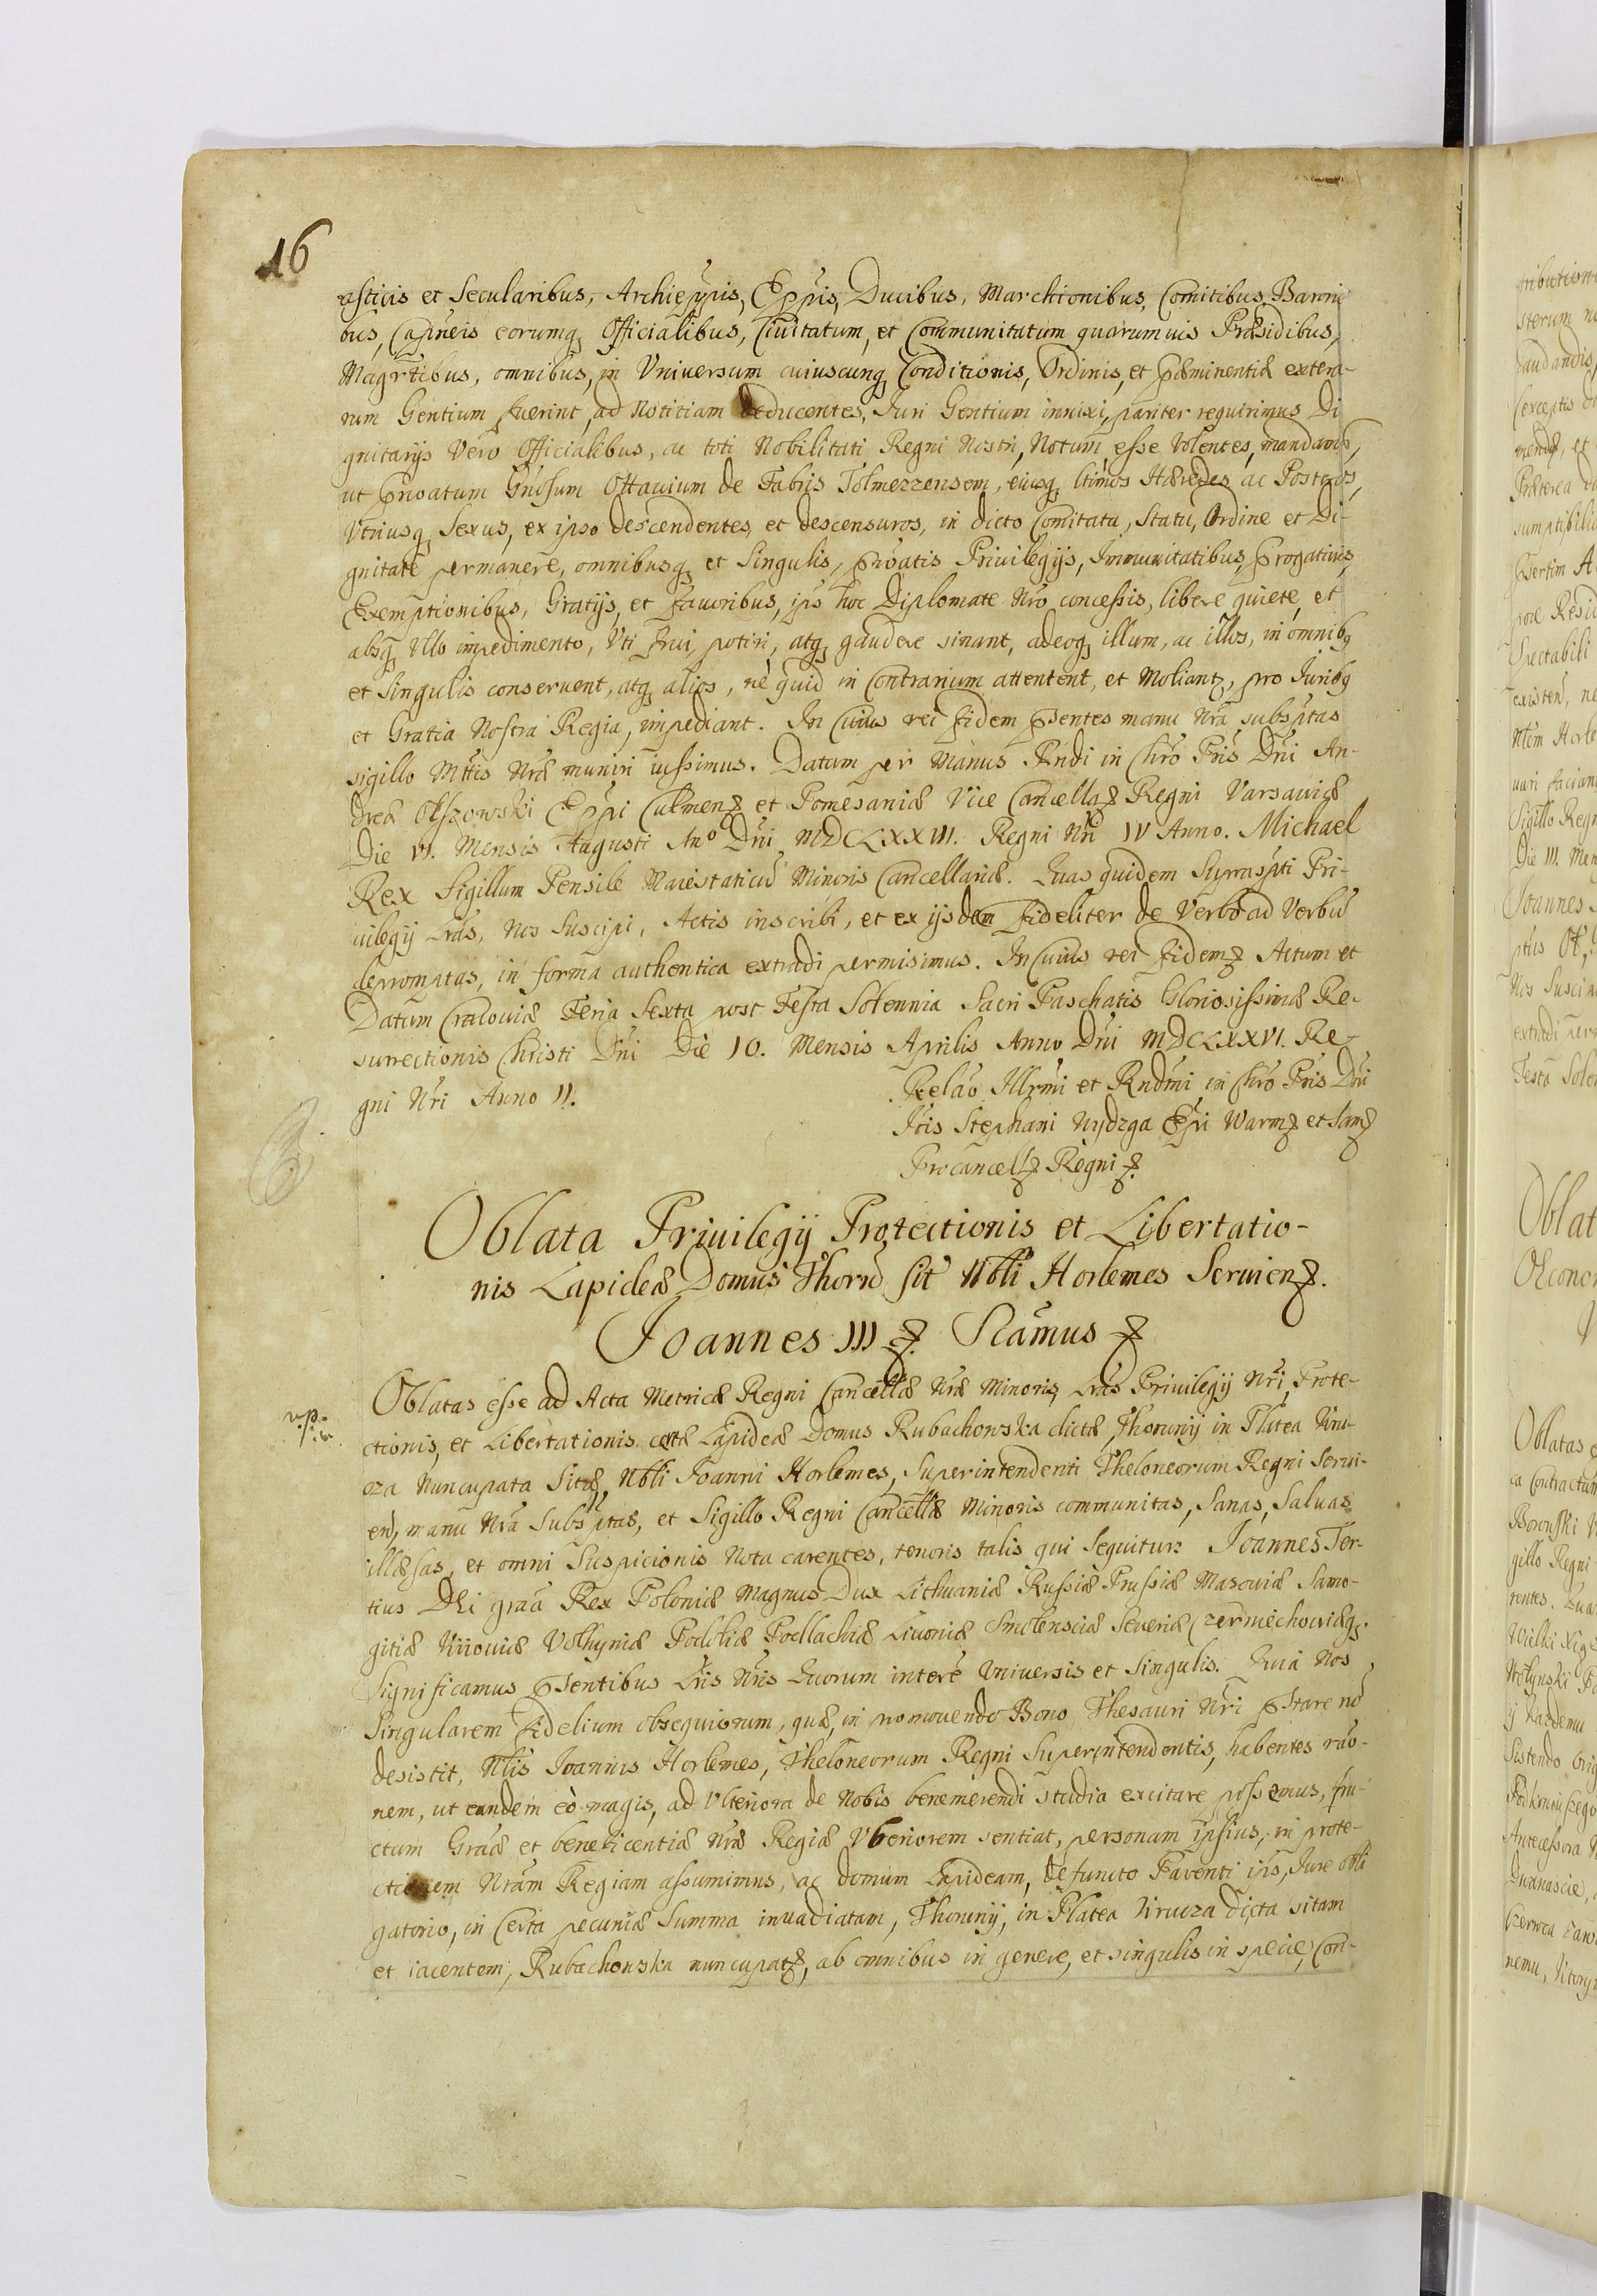 16
asticis et Secularibus, Archiep̃pis, Ep̃pis, Ducibus, Marchionibus, Comitibus, Baroni
bus, Capneis eorumq, Officialibus, Ciuitatum, et Communitatum quarumuis Præsidibus,
Magr̃tibus, omnibus, in Vniuersum cuiuscunq Conditionis, Ordinis, et Præminentiæ extera-
rum Gentium fuerint, ad Notitiam deducentes, Juri Gentium innixi, pariter requirimus Di
gnitarijs Vero Officialibus, ac toti Nobilitati Regni Nostri, Notum esse Volentes, mandamus,
ut Pr̃noatum Gñosum Ottauium de Fabris Tolmezzensem, eiusq, ltimos Hæredes ac Posteros,
Vtriusq, Sexus, ex ipso descendentes, et descensuros, in dicto Comitatu, Statu, Ordine et Di-
gnitate permanere, omnibusq, et Singulis, p̃roatis Priuilegijs, Immunitatibus, Prærogatiuis,
Exemptionibus, Gratijs, et fauoribus, ip̃s hoc Diplomate Nr̃o concessis, libere quiete, et
absq, Vllo impedimento, Vti frui, potiri, atq, gaudere sinant, adeoq, illum, ac illos, in omnibq
et Singulis conseruent, atq, alios, nè quid in Contrarium attentent, et Moliantz, pro Juribq
et Gratia Nostra Regia, impediant. In Cuius rei fidem p̃sentes manu Nr̃a subsp̃tas
sigillo Mttis Nr̃æ muniri iussimus. Datum per Manus Rndi in Chr̃o Pr̃is Dñi An-
dreæ Olszowski Ep̃pi Culmenz et Pomesaniæ Vice Cancellaz Regni Varsauiæ
Die VI. Mensis Augusti Anº Dñi MDCLXXIII. Regni Nri IV Anno. Michael
Rex Sigillum Pensile Maiestaticũ Minoris Cancellariæ. Quas quidem Suprasp̃ti Pri-
uilegij Lr̃as, Nos Suscipi, Actis inscribi, et ex ijsdem fideliter de Verbo ad Verbũ
depromptas, in forma authentica extradi permisimus. In Cuius rei fidemz Actum et
Datum Cracouiæ Feria Sexta post Festa Solennia Sacri Paschatis Gloriosissimæ Re-
surrectionis Christi Dñi Die 10. Mensis Aprilis Anno Dñi MDCLXXVI. Re-
gni Nr̃i Anno II.
Relaõ Illr̃mi et Rndm̃i in Chr̃o Pr̃is Dñi
Jois Stephani Wydzga Ep̃pi Warmz et Samz
Procancellz Regni z.
Oblata Priuilegij Protectionis et Libertatio-
nis Lapideæ Domus Thorũ sit Nbli Horlemes Seruienz.
Joannes III z. Sctãmus z
v.p.
Oblatas esse ad Acta Metricæ Regni Cancellæ Nr̃æ Minoris, Lr̃as Priuilegij Nr̃i, Prote-
ctionis, et Libertationis certæ Lapideæ Domus Rubachowska dictæ, Thorunij in Platea Kru-
cza Nuncupata Sitæ, Nbli Joanni Horlemes, Superintendenti Theloneorum Regni Serui-
en, manu Nr̃a Subsp̃tas, et Sigillo Regni Cancellæ Minoris communitas, Sanas, Saluas
illæsas, et omni Suspicionis Nota carentes, tenoris talis qui Sequitur: Joannes Ter-
tius DEi gr̃aa Rex Poloniæ Magnus Dux Lithuaniæ Russiæ Prussiæ Masouiæ Samo-
gitiæ Kiiouiæ Volhyniæ Podoliæ Podlachiæ Liuoniæ Smolensciæ Seueriæ Czerniechouiæq.
Significamus p̃sentibus Lr̃is Nr̃is Quorum interẽ Vniuersis et Singulis. Quia Nos
Singularem fidelium obsequiorum, quæ, in promouendo Bono Thesauri Nr̃i p̃stare nõ
desistit, Nblis Joannis Horlemes, Theloneorum Regni Superintendentis, habentes rão-
nem, ut eundem eò magis, ad Vlteriora de Nobis benemerendi studia excitare possemus, fru-
ctum Gr̃aæ et beneficentiæ Nr̃æ Regiæ Vberiorem sentiat, personam ipsius, in prote-
ctionem Nr̃am Regiam assumimus, ac domum Lapideam, defuncto Parenti ip̃s, Jure obli
gatorio, in Certa pecuniæ Summa inuadiatam, Thorunij, in Platea Krucza dicta sitam
et iacentem, Rubachowska nuncupatz, ab omnibus in genere, et singulis in specie, Con-